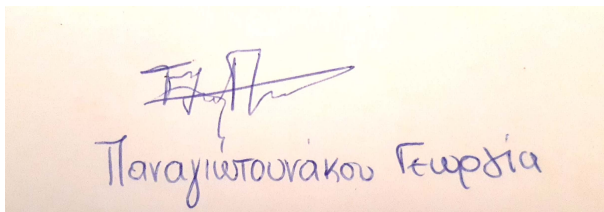 Παναγιωτουνάκου Γεωργία